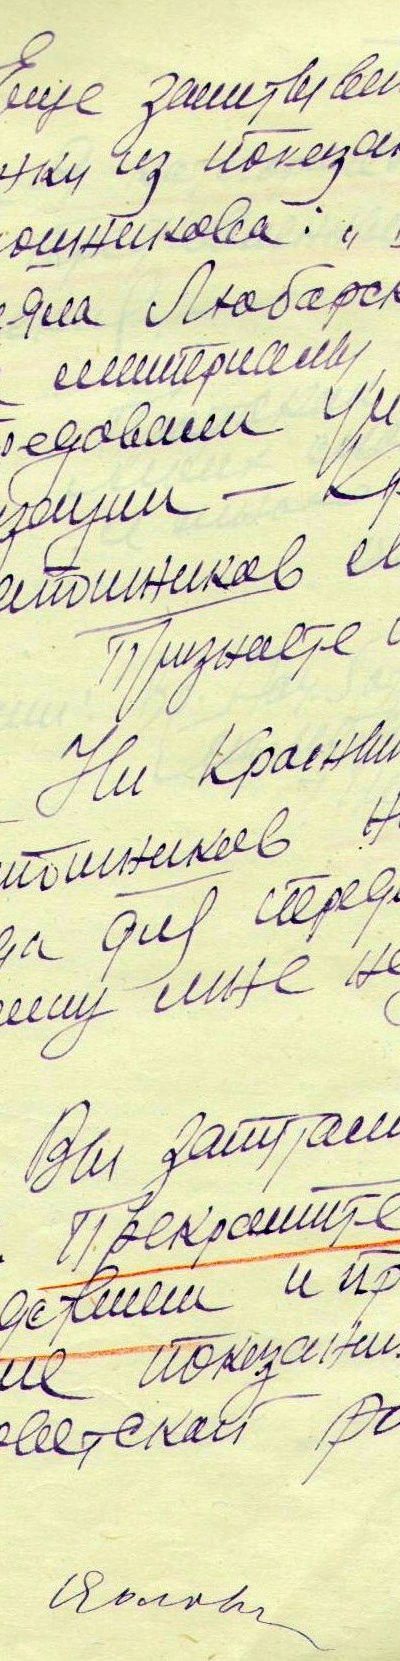 Еще зачитываю
жки из показан
ошникова: „
Любарск
материалы
едовали
зации — Кр
атошников
Признаете
Ни Красни
тошников н
да для переда
ему мне не
Вы запира
Прекратите
дствием и пр
ие показани
оветской ра